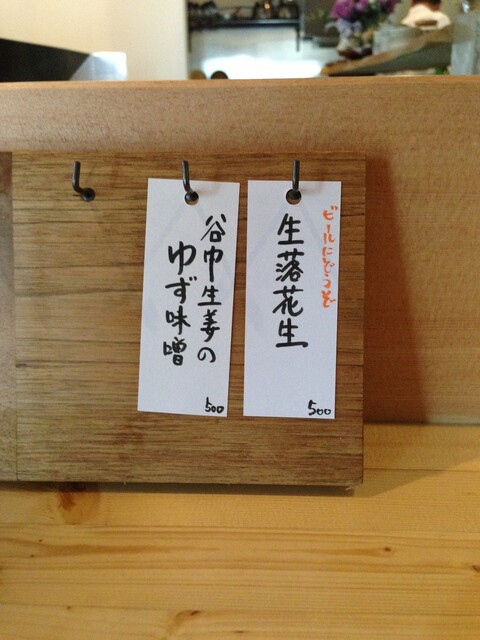 ビールにどうぞ
生落花生
500
谷中生姜の
ゆず味噌
500